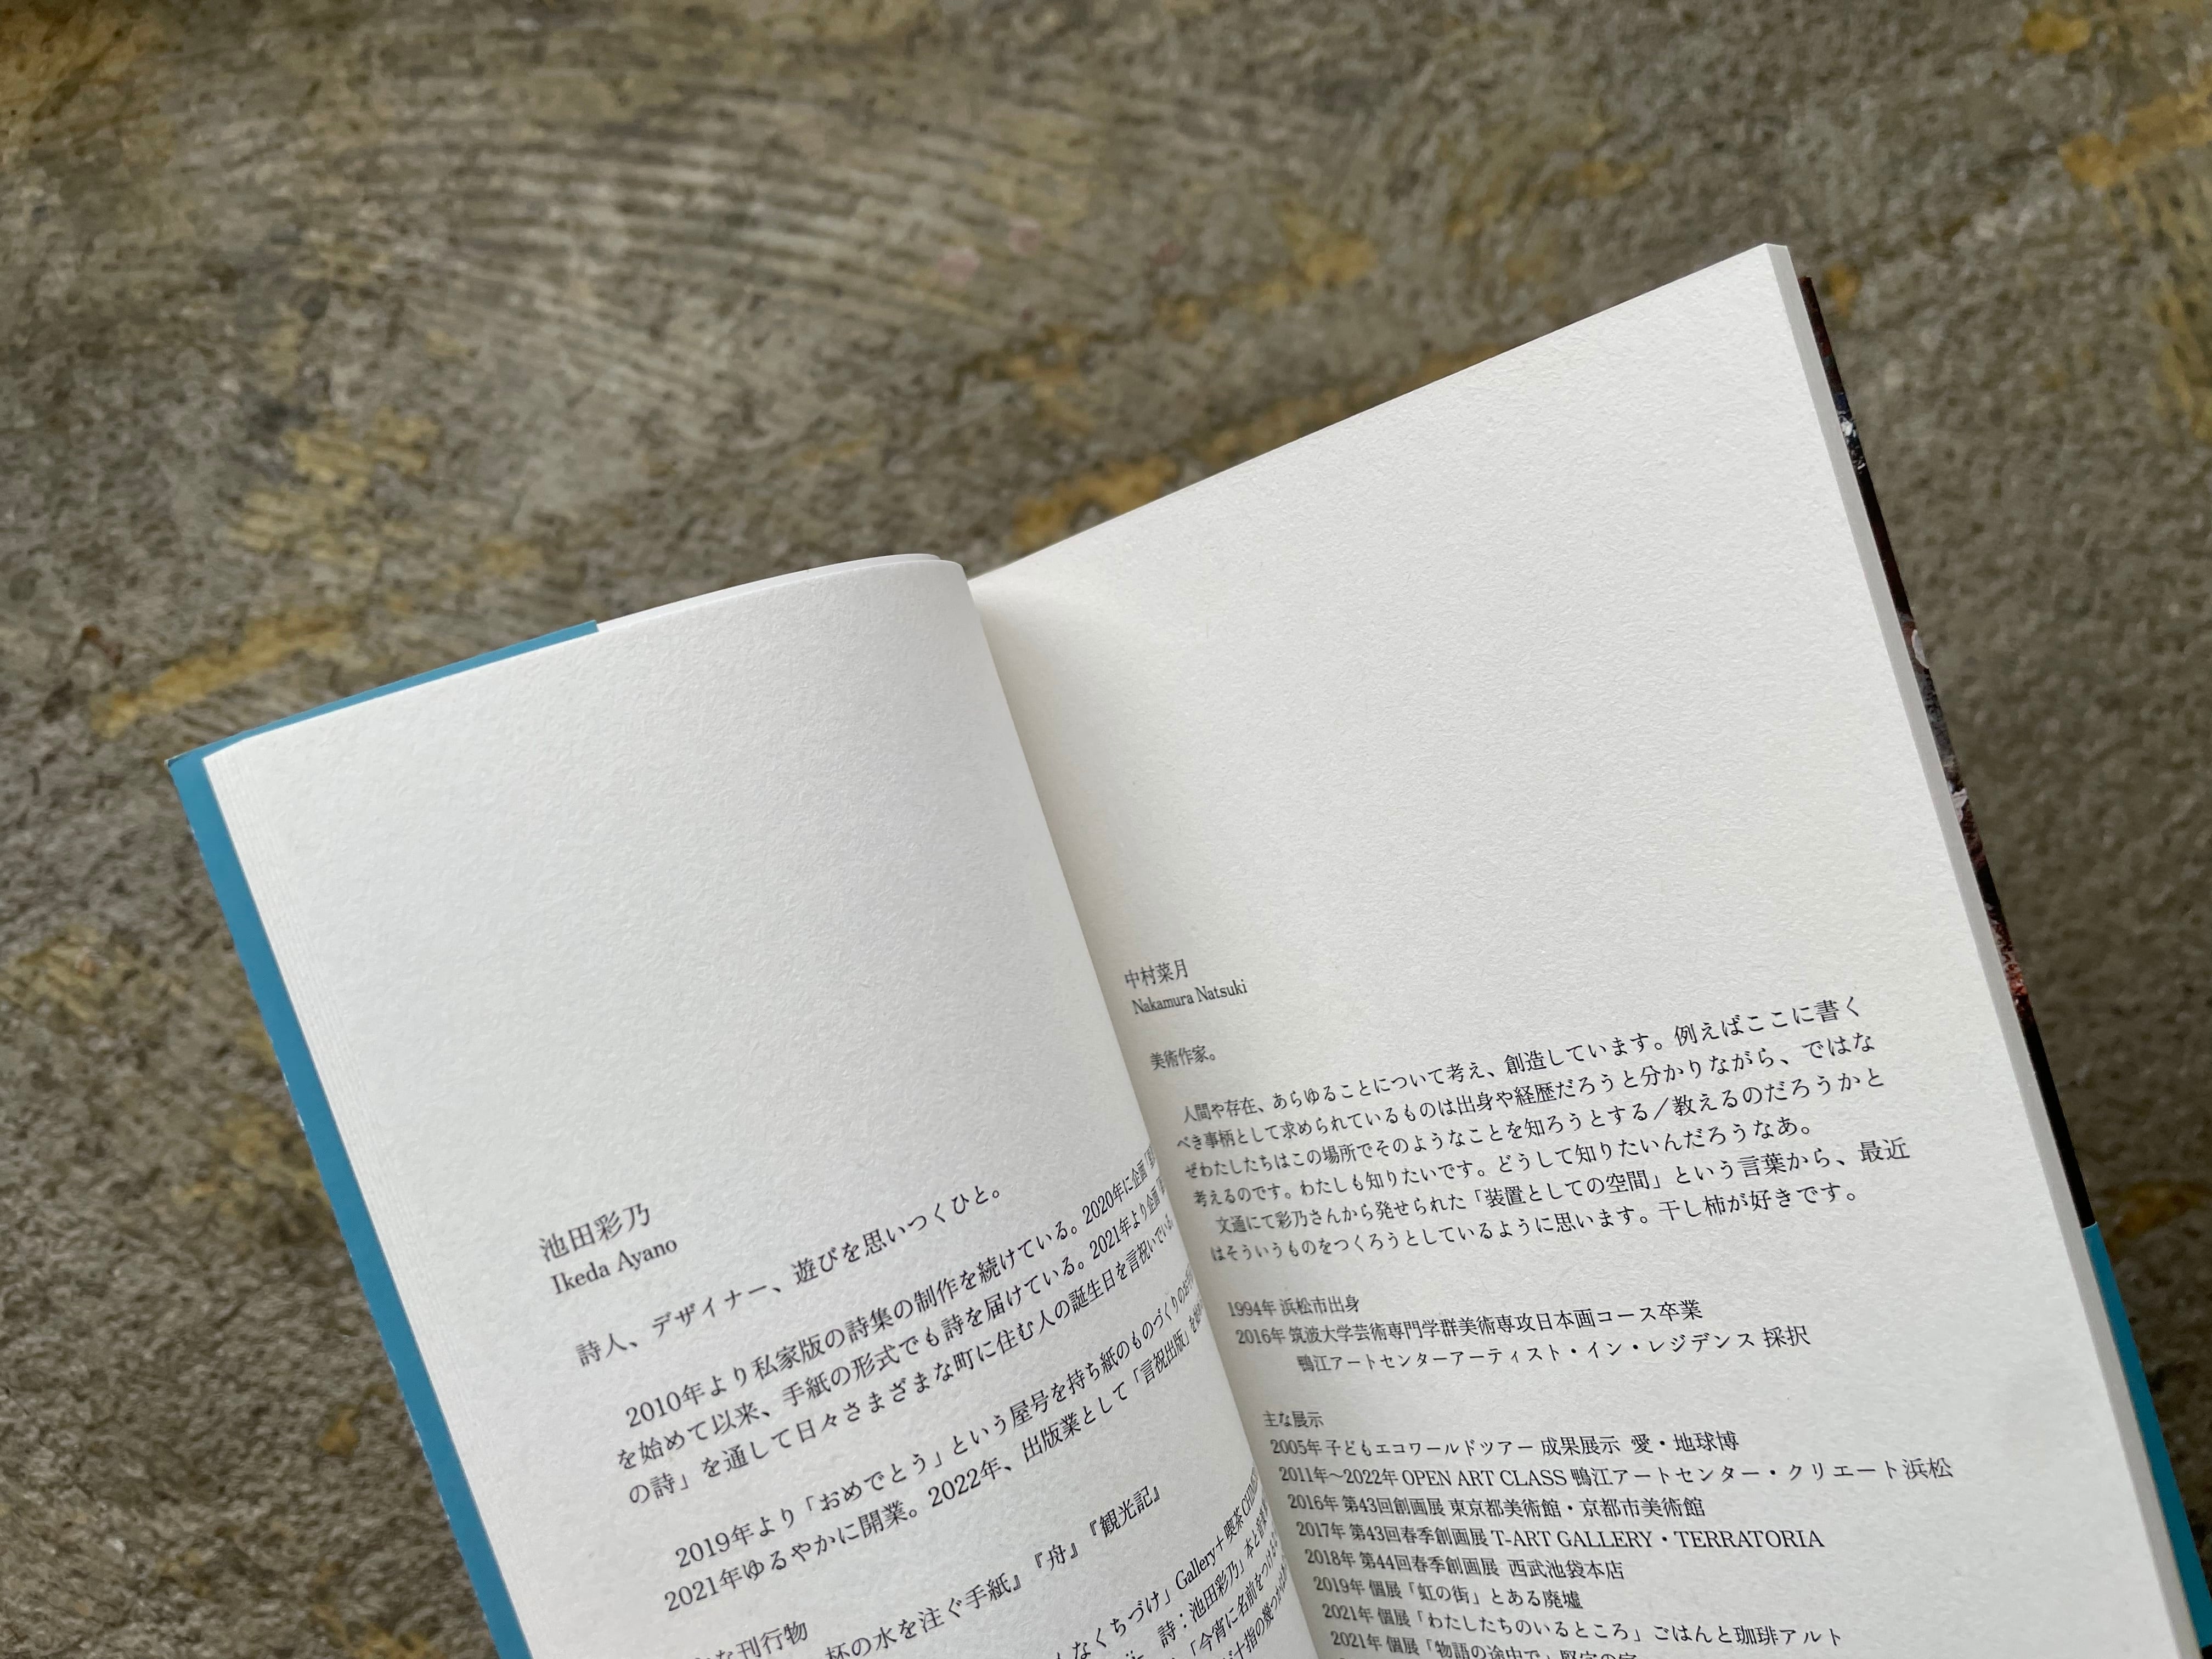 池田彩乃
Ikeda Ayano
詩人、デザイナー、遊びを思いつくひと。
2010年より私家版の詩集の制作を続けている。2020年に企画
を始めて以来、手紙の形式でも詩を届けている。2021年より企画
の詩」を通して日々さまざまな町に住む人の誕生日を言祝いでいる
2019年より「おめでとう」という屋号を持ち紙のものづくりのお
2021年ゆるやかに開業。2022年、出版業として「言祝出版」を
な刊行物
杯の水を注ぐ手紙』『舟』『観光記』
なくちづけ」Gallery+喫茶
詩:池田彩乃」本と
「今宵に名前をつけるな
十指の幾つか
中村菜月
Nakamura Natsuki
美術作家。
人間や存在、あらゆることについて考え、創造しています。例えばここに書く
べき事柄として求められているものは出身や経歴だろうと分かりながら、ではな
ぜわたしたちはこの場所でそのようなことを知ろうとする/教えるのだろうかと
考えるのです。わたしも知りたいです。どうして知りたいんだろうなあ。
文通にて彩乃さんから発せられた「装置としての空間」という言葉から、最近
はそういうものをつくろうとしているように思います。干し柿が好きです。
1994年 浜松市出身
2016年 筑波大学芸術専門学群美術専攻日本画コース卒業
鴨江アートセンターアーティスト・イン・レジデンス 採択
主な展示
2005年 子どもエコワールドツアー 成果展示 愛・地球博
2011年〜2022年 OPEN ART CLASS 鴨江アートセンター・クリエート浜松
2016年 第43回創画展 東京都美術館・京都市美術館
2017年 第43回春季創画展 T-ART GALLERY・TERRATORIA
2018年 第44回春季創画展 西武池袋本店
2019年 個展「虹の街」とある廃墟
2021年 個展「わたしたちのいるところ」ごはんと珈琲アルト
2021年 個展「物語の途中で」